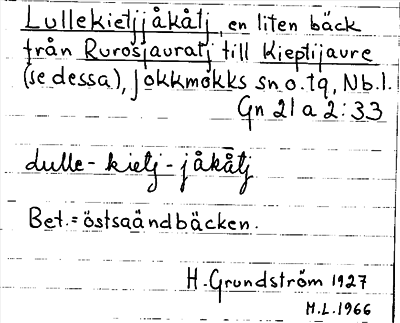 Lullekietjjåkåtj, en liten bäck
från Rurosjauratj till Kieptijaure
(se dessa), Jokkmokks sn o. tg, Nb.l.
Gn 21 a 2:33
dulle-kietj-jåkåtj
Bet.= östsaändbäcken.
H. Grundström 1927
M.L. 1966